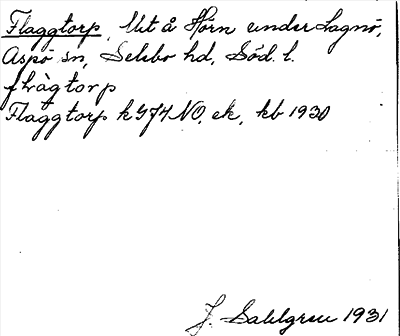 Flaggtorp, Ut å Hörn under Lagnö,
Aspö sn, Selebo hd, Söd. l.
flàgtorp
Flaggtorp k 474 NO, ek, kb 1930
J. Sahlgren 1931